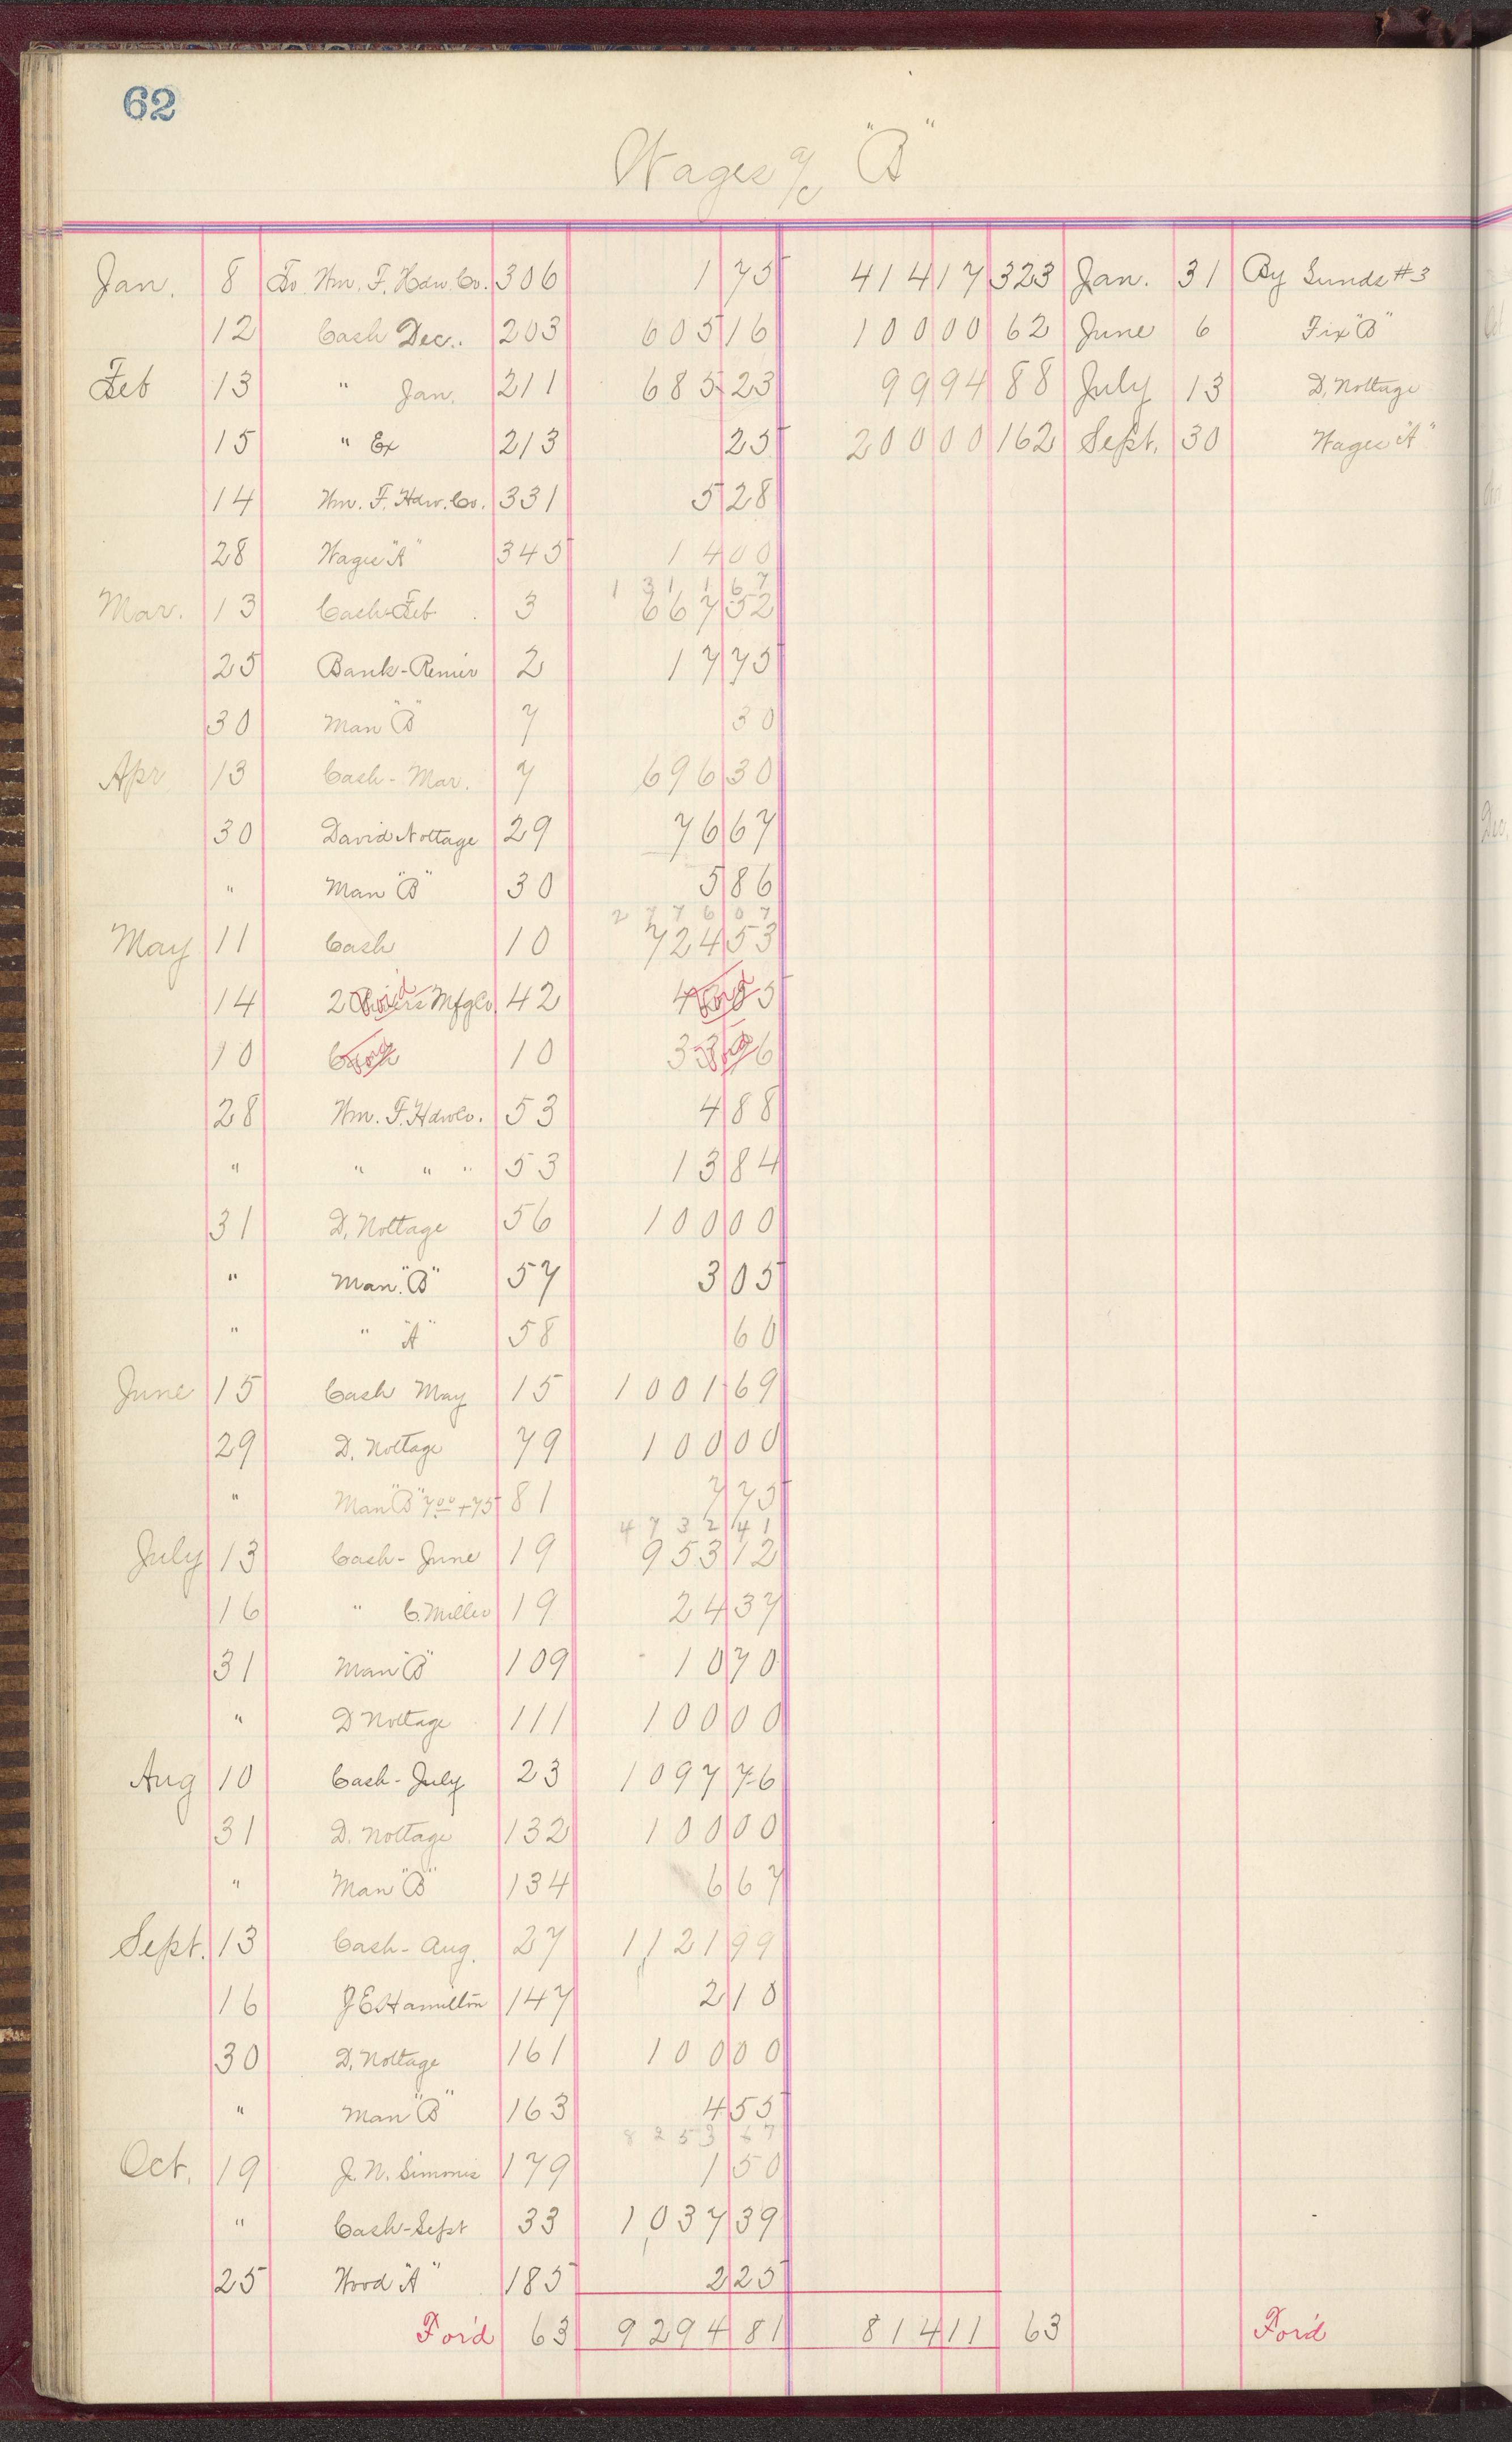 62
Wages a/c "B"
Jan. 8 To Wm. F. Hdw. Co. 306 1 75 414 17 323 Jan. 31 By Sunds #3
12 Cash Dec. 203 605 16 100 00 62 June 6 Fix "B"
Feb 13 " Jan. 211 685 23 99 94 88 July 13 D. Nottage
15 " Ex 213 25 200 00 162 Sept. 30 Wages "A"
14 Wm. F. Hdw. Co. 331 5 28
28 Wages "A" 345 14 00
1311 67
Mar. 13 Cash-Feb. 3 667 52
25 Bank- 2 17 75
30 Man "B" 7 30
Apr 13 Cash - Mar. 7 696 30
30 David Nottage 29 76 67
" Man "B" 30 5 86
2776 07
May 11 Cash 10 724 53
14 Void Mfg Co. 42 Void
10 Cash Void 10 Void
28 Wm. F. Hdw Co. 53 4 88
" " " " 53 13 84
31 D. Nottage 56 100 00
" Man. "B" 57 3 05
" " "A" 58 60
June 15 Cash May 15 1001 69
29 D. Nottage 79 100 00
" Man "B" 7 00 + 75 81 7 75
4732 41
July 13 Cash - June 19 953 12
16 " C. Miller 19 24 37
31 Man "B" 109 10 70
" D Nottage 111 100 00
Aug 10 Cash - July 23 1097 76
31 D. Nottage 132 100 00
" Man "B" 134 6 67
Sept. 13 Cash - Aug. 27 1,121 99
16 J E Hamilton 147 2 10
30 D. Nottage 161 100 00
" Man "B" 163 4 55
8253 67
Oct. 19 J. N. Simonis 179 1 50
" Cash - Sept 33 1,037 39
25 Wood "A" 185 2 25
For'd 63 9294 81 814 11 63 For'd